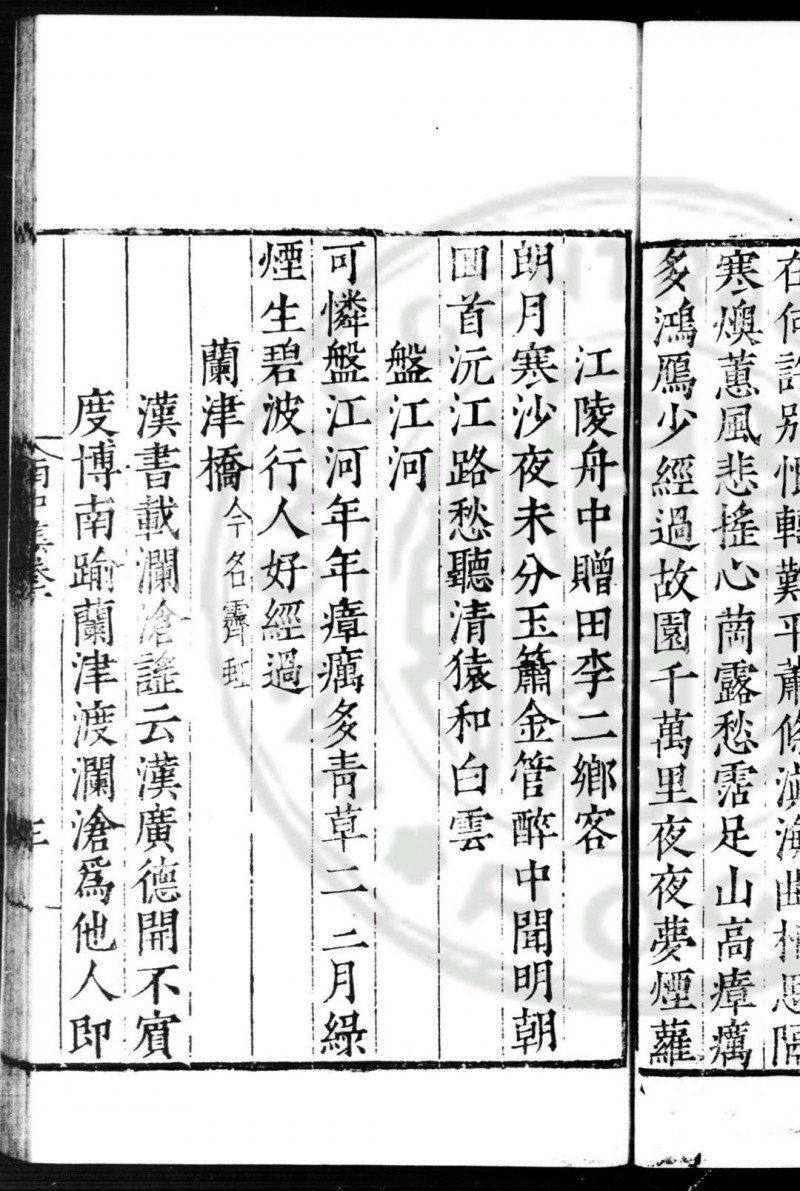 在何許別恨轉難平蕭條滇海曲相思隔
寒燠蕙風悲搖心茵露愁霑足山高瘴癘
多鴻鴈少經過故園千萬里夜夜夢煙蘿
江陵舟中贈田李二鄉客
朗月寒沙夜未分玉簫金管醉中聞明朝
回首沅江路愁聽清猿和白雲
盤江河
可憐盤江河年年瘴癘多青草二三月綠
煙生碧波行人好經過
蘭津橋今名霽虹
漢書載瀾滄謠云漢廣德開不賓
度博南踰蘭津渡瀾滄爲他人即
南中集卷
三